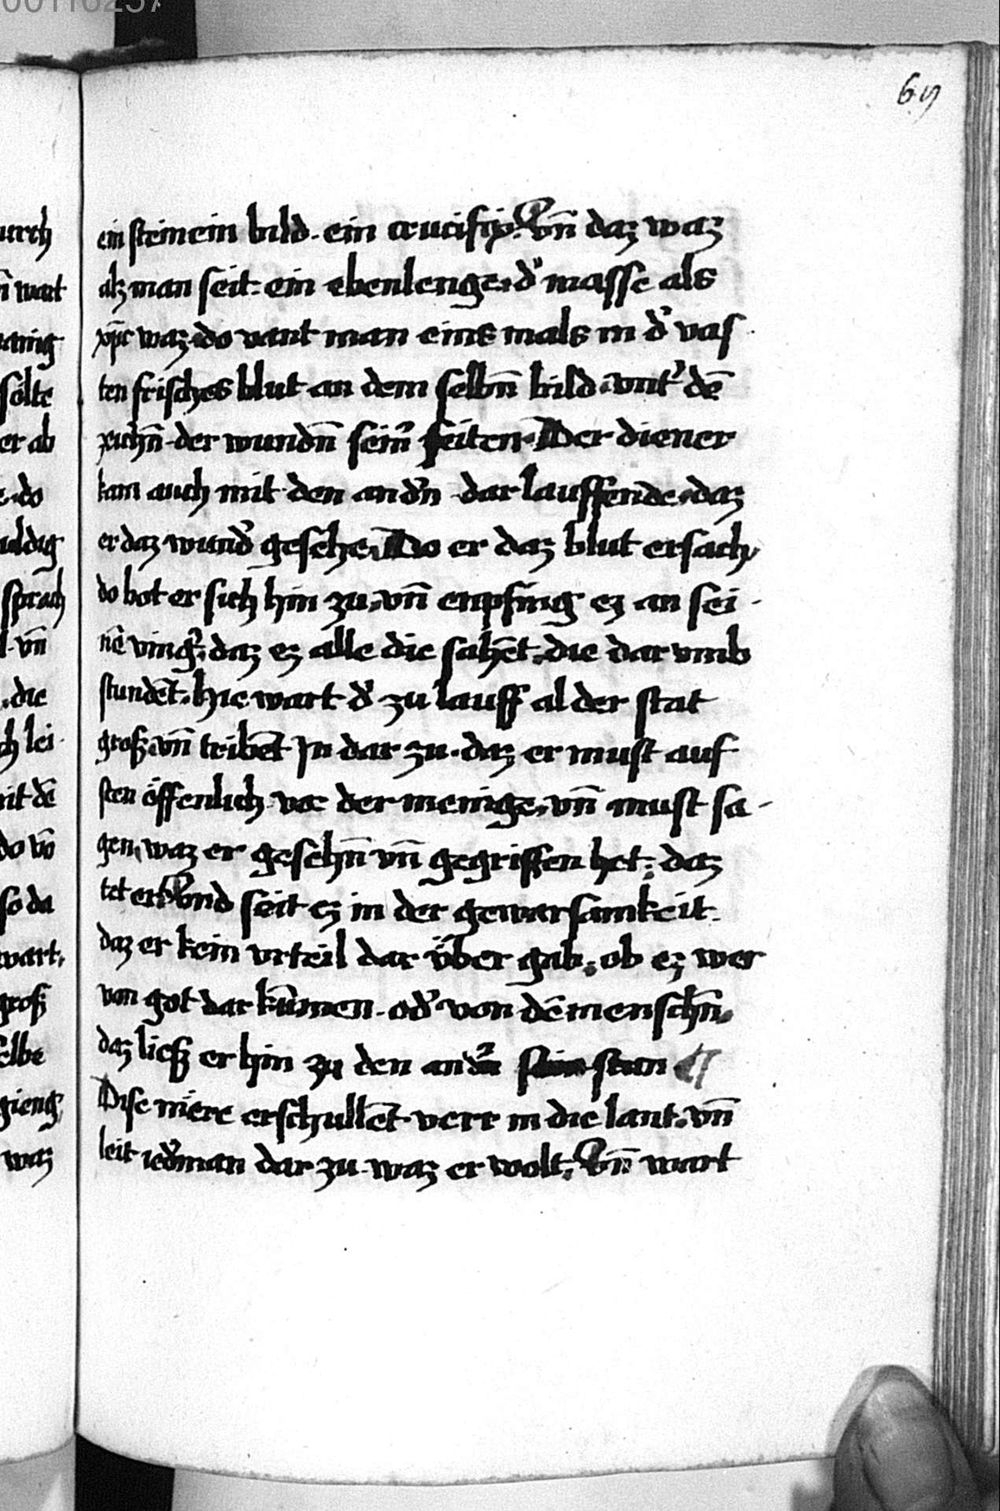 65
ein steinein bild. ein crucifix. Vn̄ daz waz
alz man seit: ein ebenlenge. dˀ masse als
xp̄c waz. do vant man eins mals in dˀ vas
ten frisches blut an dem selbn̄ bild. vntˀ dē
zeichn̄ der wundn̄ seinˀ seiten. Der diener
kam auch mit den andˀn dar lauffende. daz
er daz wundˀ gesehe. Do er daz blut ersach,
do bot er sich hin zu. vn̄ enpfing ez an sei
nē vingˀ. daz ez alle die sahēt. die dar vmb
stundēt. hie wart dˀ zu lauff al der stat
groß. vn̄ tribēt jn dar zu. daz er must auf
sten öffenlich vor der menige. vn̄ must sa
gen, waz er gesehn̄ vn̄ gegriffen het: daz
tet er. Vnd seit ez in der gewarsamkeit.
daz er kein vrteil dar über gab. ob ez wer
von got dar kūmen. odˀ von dē menschn̄.
daz ließ er hin zu den andˀn stan
Dise mere erschullēt verr in die lant. vn̄
leit iedˀman dar zu waz er wolt. Vn̄ wart
urch
wart
sölte
er ab
do
uldig
sprach
vn̄
die
ch lei
mit dē
do vō
so da
wart.
groß
selbe
gieng
waz